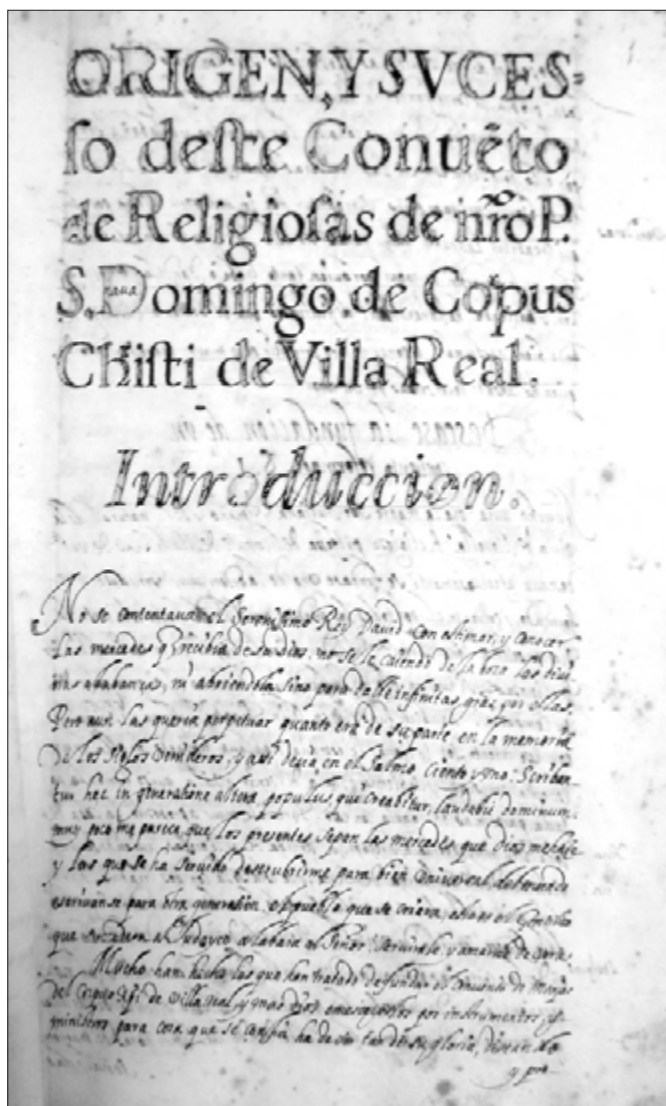 ORIGEN, Y SVCES=
so deste Conuẽto
de Religiosas de nr̃o P.
S. Domingo de Copus
Chisti de Villa Real.
Introduccion.
No se contentaua el Serenissimo Rey David con estimar, y conocer
las mercedes q̃ recibia de su dios, no se le caiendo de la boca las diui
nas alabanzas, ni abriendola sino para dalle infinitas gr̃as por ellas.
Pero aun las queria perpetuar quanto era de su parte en la memoria
de los siglos venideros, y assi decia en el Salmo ciento y uno: Scriban
tur hec in generatione altera, populus, qui creabitur, laudabit dominum.
muy poco me parece, que los presentes sepan las mercedes que dios me hace
y las que se ha servido descubrirme para bien universal del mundo
escrivanse para otra generasion. el pueblo que se criara,
que al Judayco alabara al Señor.
Mucho han hecho los que han tratado de fundar el Convento de Monjas
del Corpus Xp̃i de Villa Real, y mas dios por instrumentos, y
ministros para cosa que se ha de su gloria,
y pre